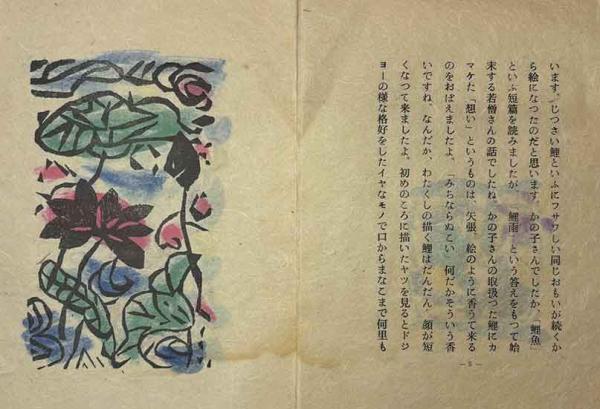 います。じつさい鯉といふにフサワしい同じおもいが続くか
ら絵になつたのだと思います。かの子さんでしたか、「鯉魚」
といふ短篇を読みましたが 鯉雨 という答えをもつて始
末する若僧さんの話でしたね かの子さんの取扱つた鯉にカ
マケた「想い」というものは、矢張 絵のように香うて来る
のをおぼえましたよ、「みちならぬこい 何だかそういう香
いですね、なんだか、わたくしの描く鯉はだんだん 顔が短
くなつて来ましたよ。初めのころに描いたヤツを見るとドジ
ョーの様な格好をしたイヤなモノで口からまなこまで何里も
— 5 —